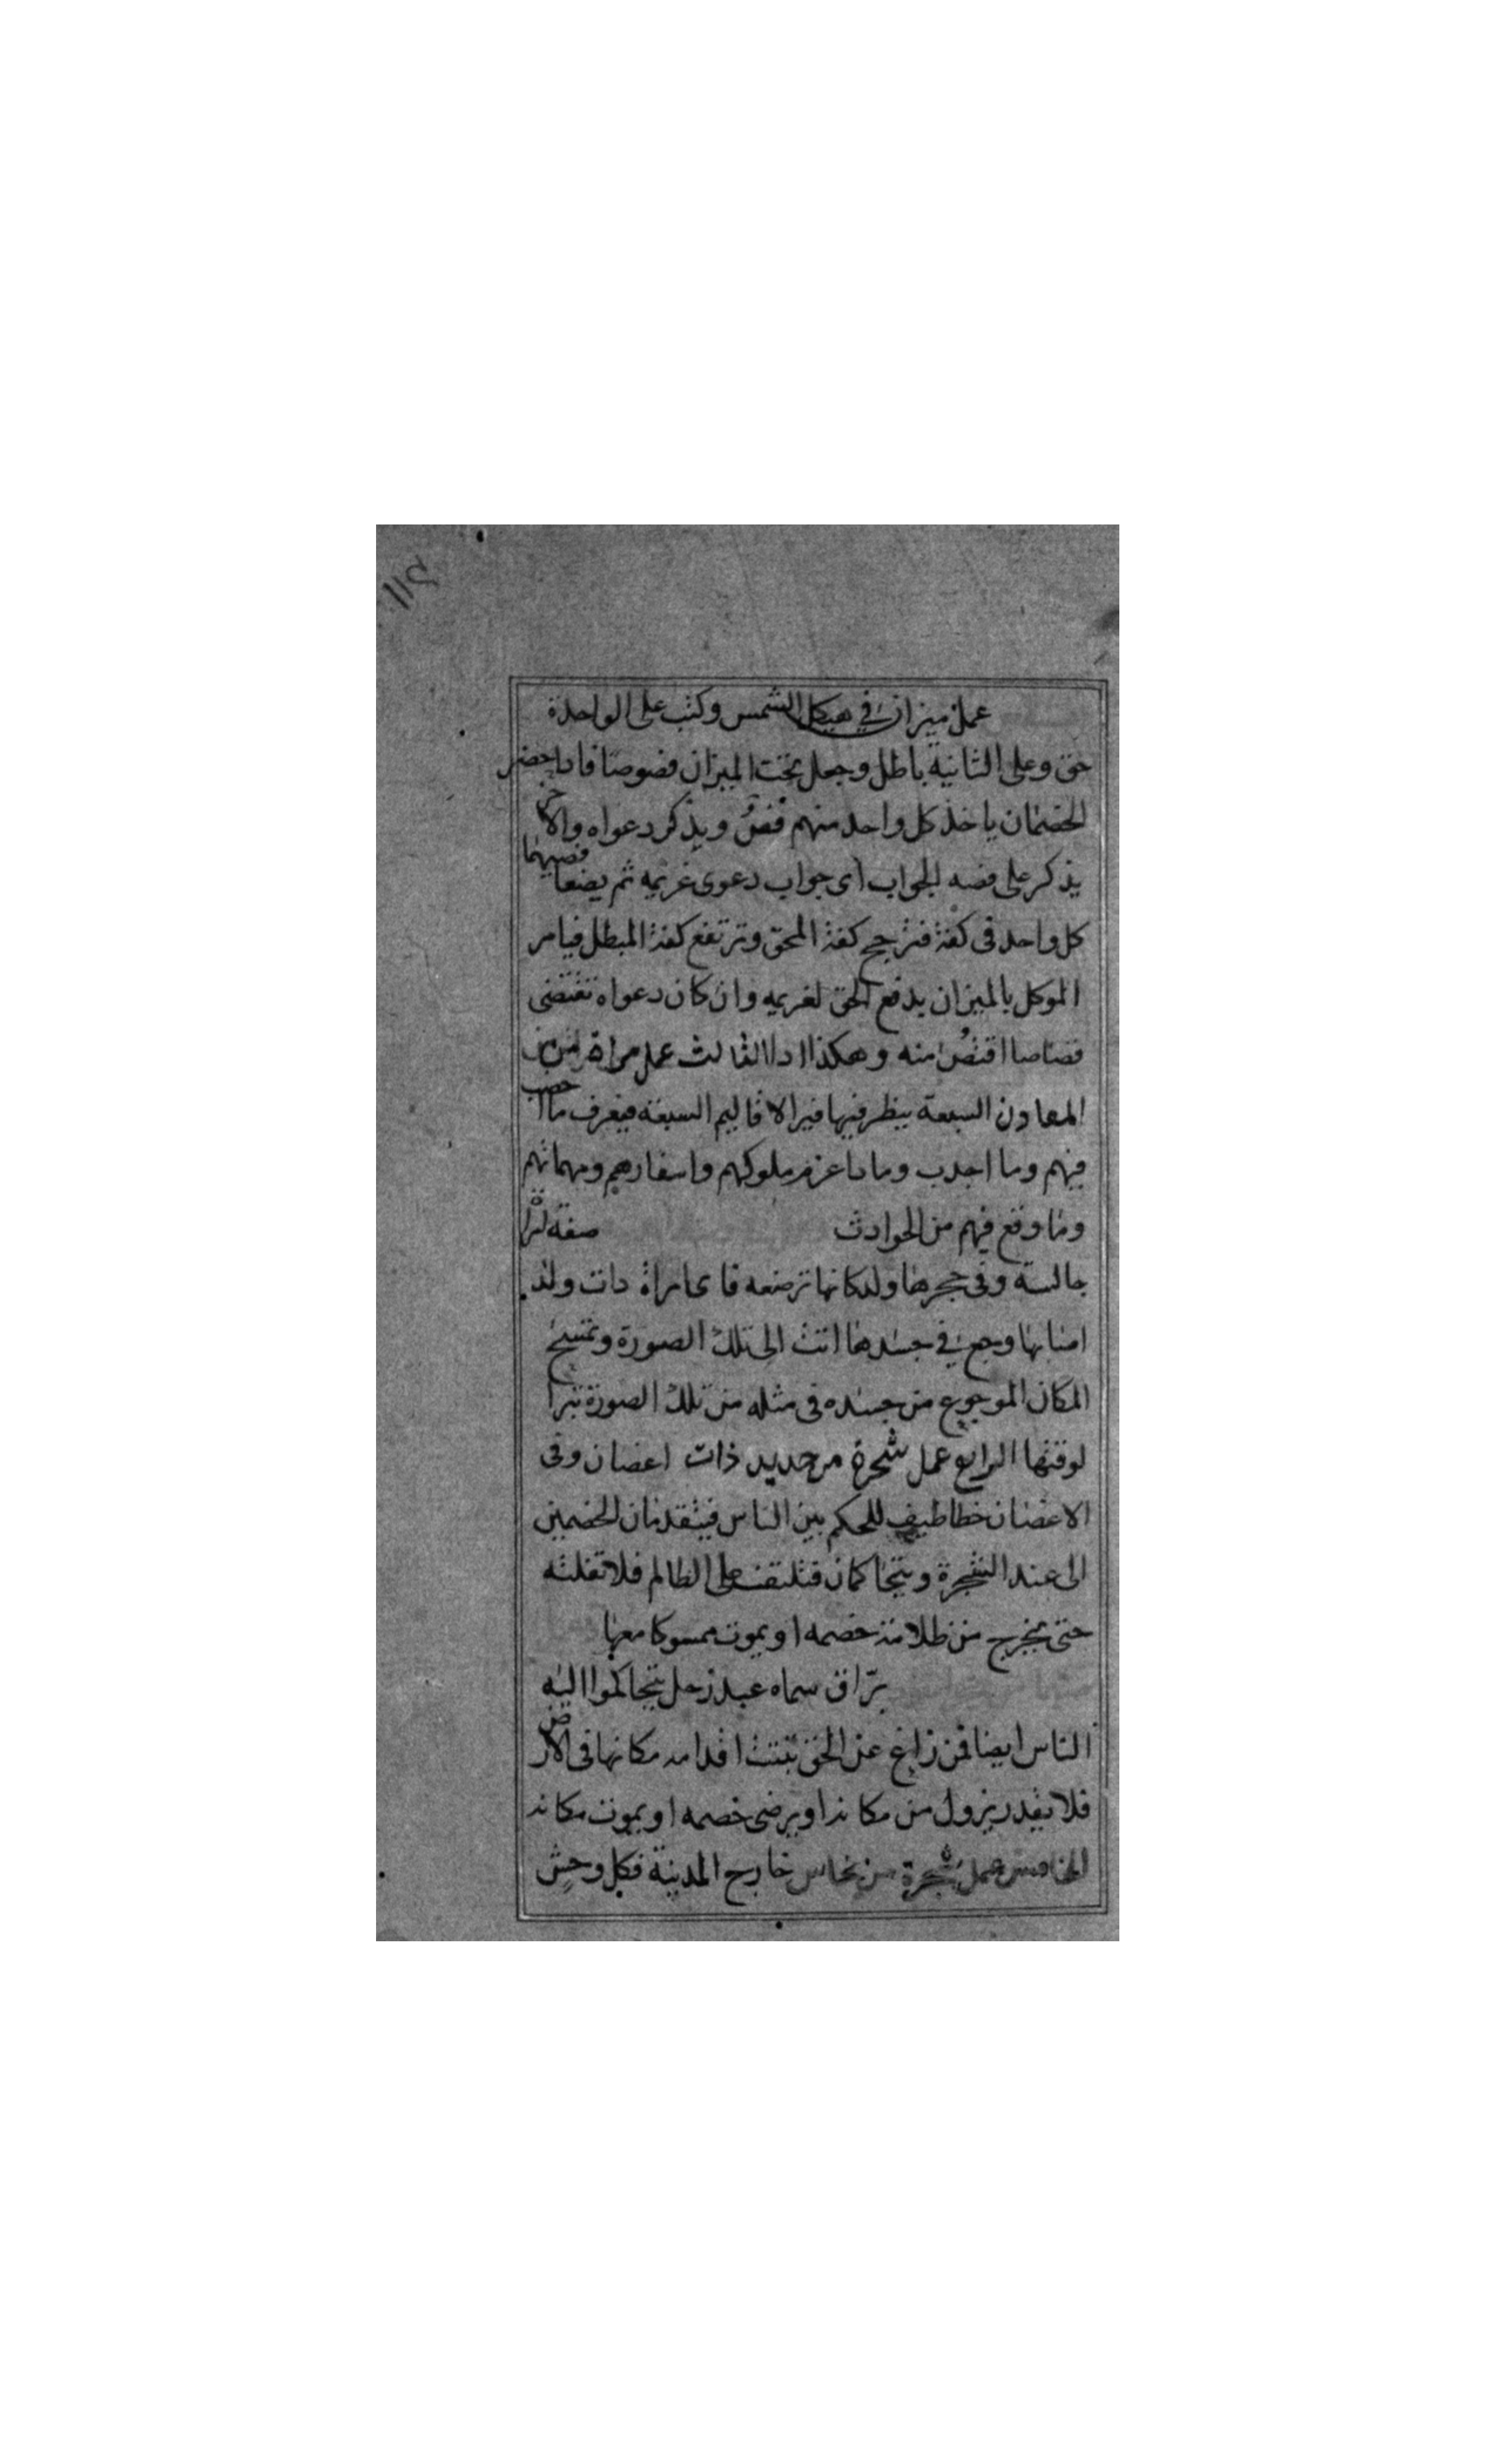 عمل ميزان في هيكل الشمس وكتب على الواحدة
حق وعلى الثانية باطل وجعل تحت الميزان فصوصا فاداحضر
الخصمان ياخذ كل واحد منهم فصُ ويذكر دعواه والاخر
يذكر على فصه الجواب اى جواب دعوى غريمه ثم يضعا فصيهما
كل واحد فى كفة فترجح كفة المحق وترتفع كفة المبطل فيامر
الموكل بالميزان بدفع الحق لغريمه وان كان دعواه تقتضى
قصاصا اقتصُ منه وهكذا الثالث عمل مراة من
المعادن السبعة ينظر فيها فيرا الاقاليم السبعة فيعرف ما اخصب
فيهم وما اجدب وماداعزم ملوكهم واسفارهم ومهماتهم
وما وقع فيهم من الحوادث صفة
جالسة وفى حجرها ولد كانها ترضعه فاى امراة دات ولد
اصابها وجع في جسدها اتت الى تلك الصورة وتمسح
المكان الموجوع من جسده فى مثله من تلك الصورة تبرا
لوقتها الرابع عمل شجرة من حديد ذات اغصان وفى
الاغصان خطاطيف للحكم بين الناس فيتقدمان الخصمين
الى عند الشجرة ويتحاكمان فتلتف على الظالم فلا تفلته
حتى يخرج من ظلامة خصمه او يموت ممسوكا معها
برّاق سماه عبد زحل يتحاكموا اليه
الناس ايضا فمن زاغ عن الحق تثبتت اقدامه مكانها فى الارض
فلا يقدر يزول من مكانه او يرضى خصمه او يموت مكانه
الخامس عمل شجرة من نحاس خارج المدينة فكل وحش